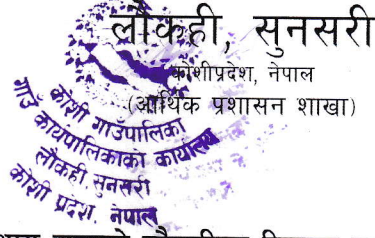 लौकही, सुनसरी
कोशीप्रदेश, नेपाल
(आर्थिक प्रशासन शाखा)
कोशी गाउँपालिका
गाउँ कार्यपालिकाको कार्यालय
लौकही, सुनसरी
कोशी प्रदेश, नेपाल